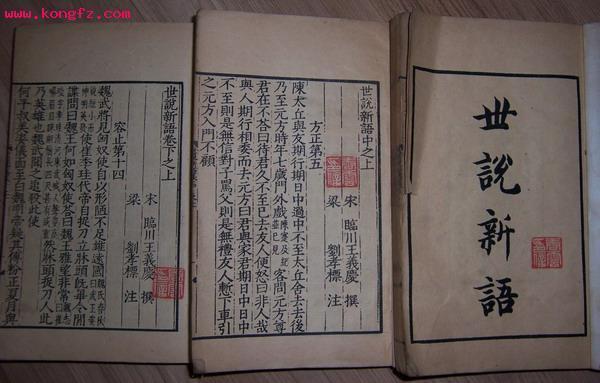 www.kongfz.com
世說新語
世說新語中之上
宋 臨川王義慶 撰
梁 劉孝標 注
方正第五
陳太丘與友期行期日中過中不至太丘舍去去後
乃至元方時年七歲門外戲陳寔及紀並已見客問元方尊
君在不荅曰待君久不至已去友人便怒曰非人哉
與人期行相委而去元方曰君與家君期日中日中
不至則是無信對子罵父則是無禮友人慙下車引
之元方入門不顧
世說新語卷下之上
宋 臨川王義慶 撰
梁 劉孝標 注
容止第十四
魏武將見匈奴使自以形陋不足雄遠國魏氏春秋曰武王姿
貌短小而神明英發使崔季珪代帝自捉刀立牀頭旣畢令間
諜問曰魏王何如匈奴使荅曰魏王雅望非常
然牀頭捉刀人此
乃英雄也魏武聞之追殺此使
何平叔美姿儀面至白魏明帝疑其傅粉正夏月與